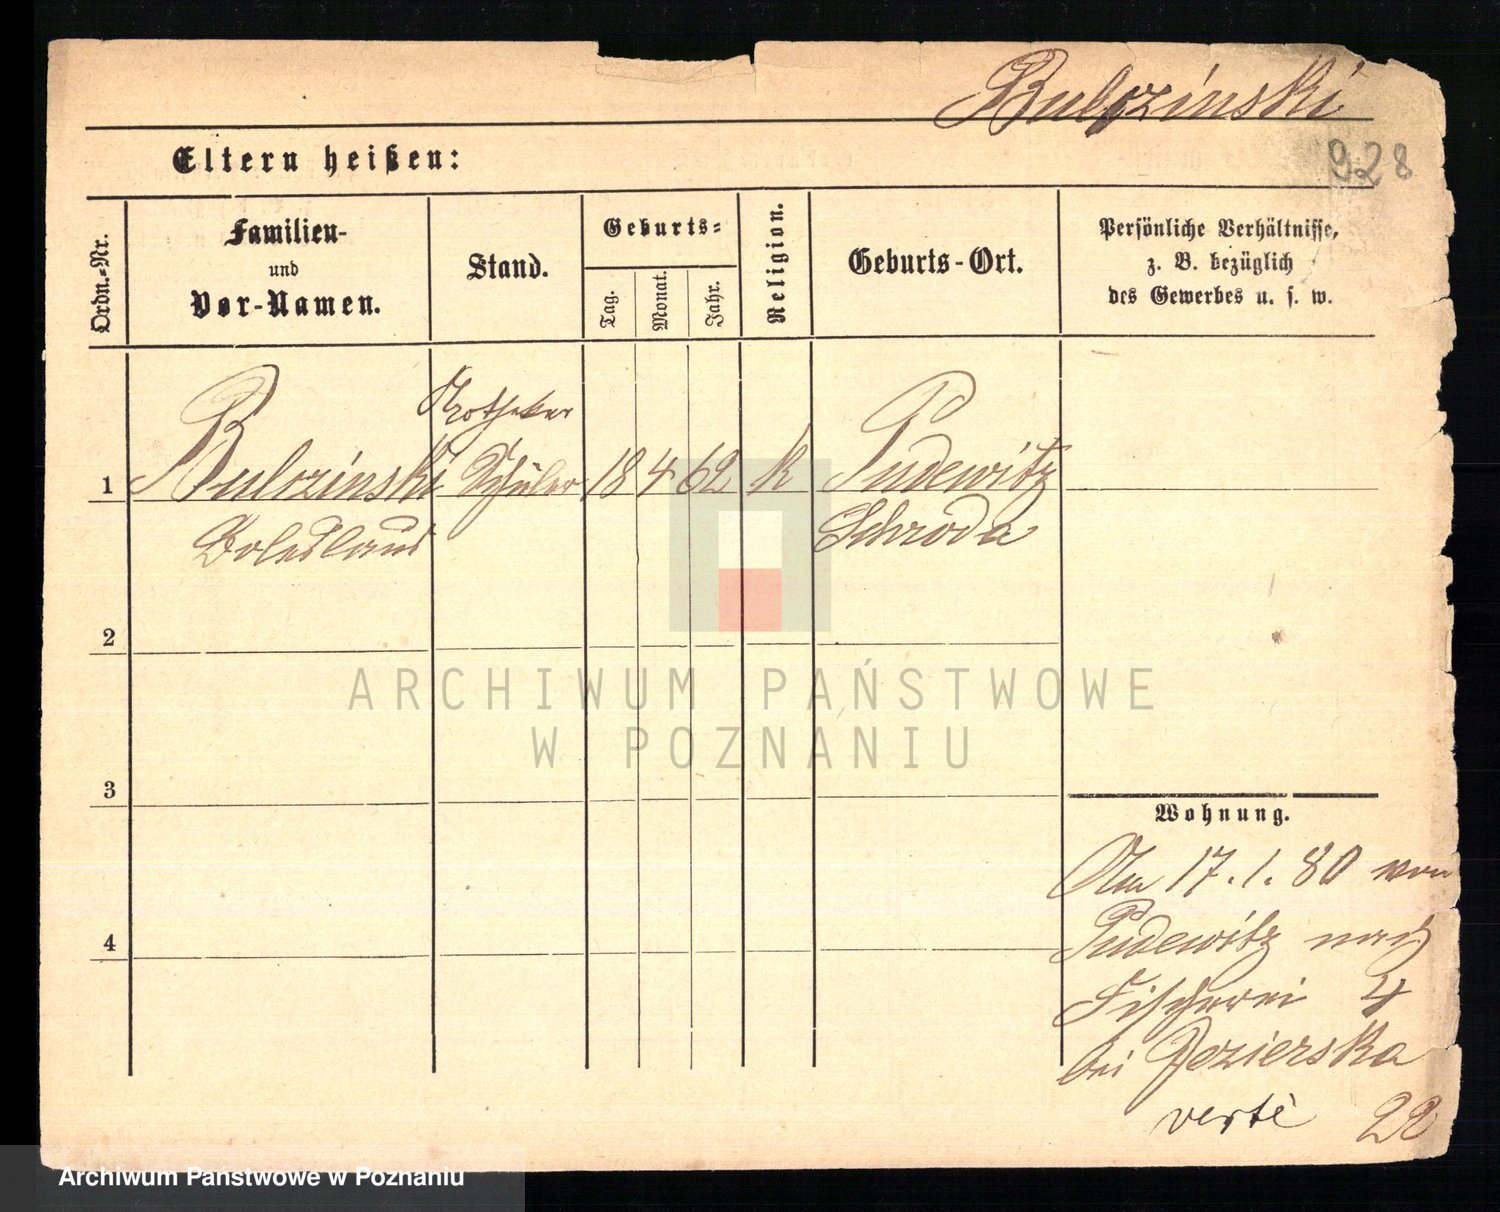 Bulczinski
928
Eltern heißen:
Ordn.-Nr.
Familien-
und
Vor-Namen.
Stand.
Geburts-
Tag.
Monat.
Jahr.
Religion.
Geburts-Ort.
Persönliche Verhältnisse,
z. B. bezüglich
des Gewerbes u. s. w.
Apotheker
1 Bulczinski Schüler 18 4 62 k Pudewitz
Boleslaus Schroda
2
3
4
Wohnung.
Am 17.1.80 von
Pudewitz nach
Fischerei 4
bei Jezierska
verte 22
ARCHIWUM PAŃSTWOWE
W POZNANIU
Archiwum Państwowe w Poznaniu